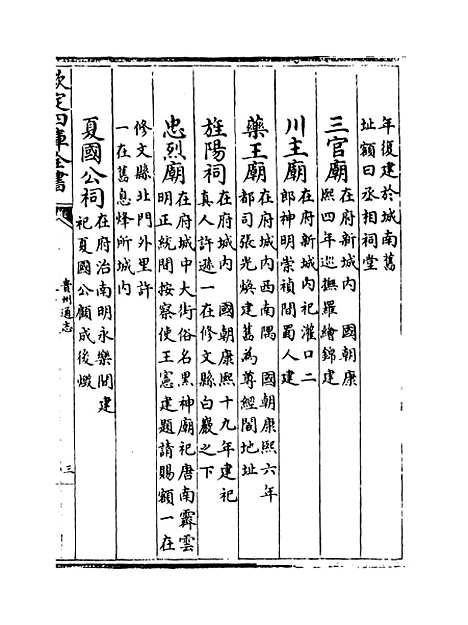 年復建於城南舊
址額曰丞相祠堂
三官廟在府新城内　國朝康
熙四年巡撫羅繪錦建
川主廟在府新城内祀灌口二
郎神明崇禎間蜀人建
藥王廟在府城内西南隅　國朝康熙六年
都司張光煥建舊為尊經閣地址
旌陽祠在府城内　國朝康熙十九年建祀
真人許遜一在修文縣白巖之下
忠烈廟在府城中大街俗名黑神廟祀唐南霽雲
明正統間按察使王憲建題請賜額一在
修文縣北門外里許
一在舊息烽所城内
夏國公祠在府治南明永樂間建
祀夏國公顧成後燬
欽定四庫全書
貴州通志
三